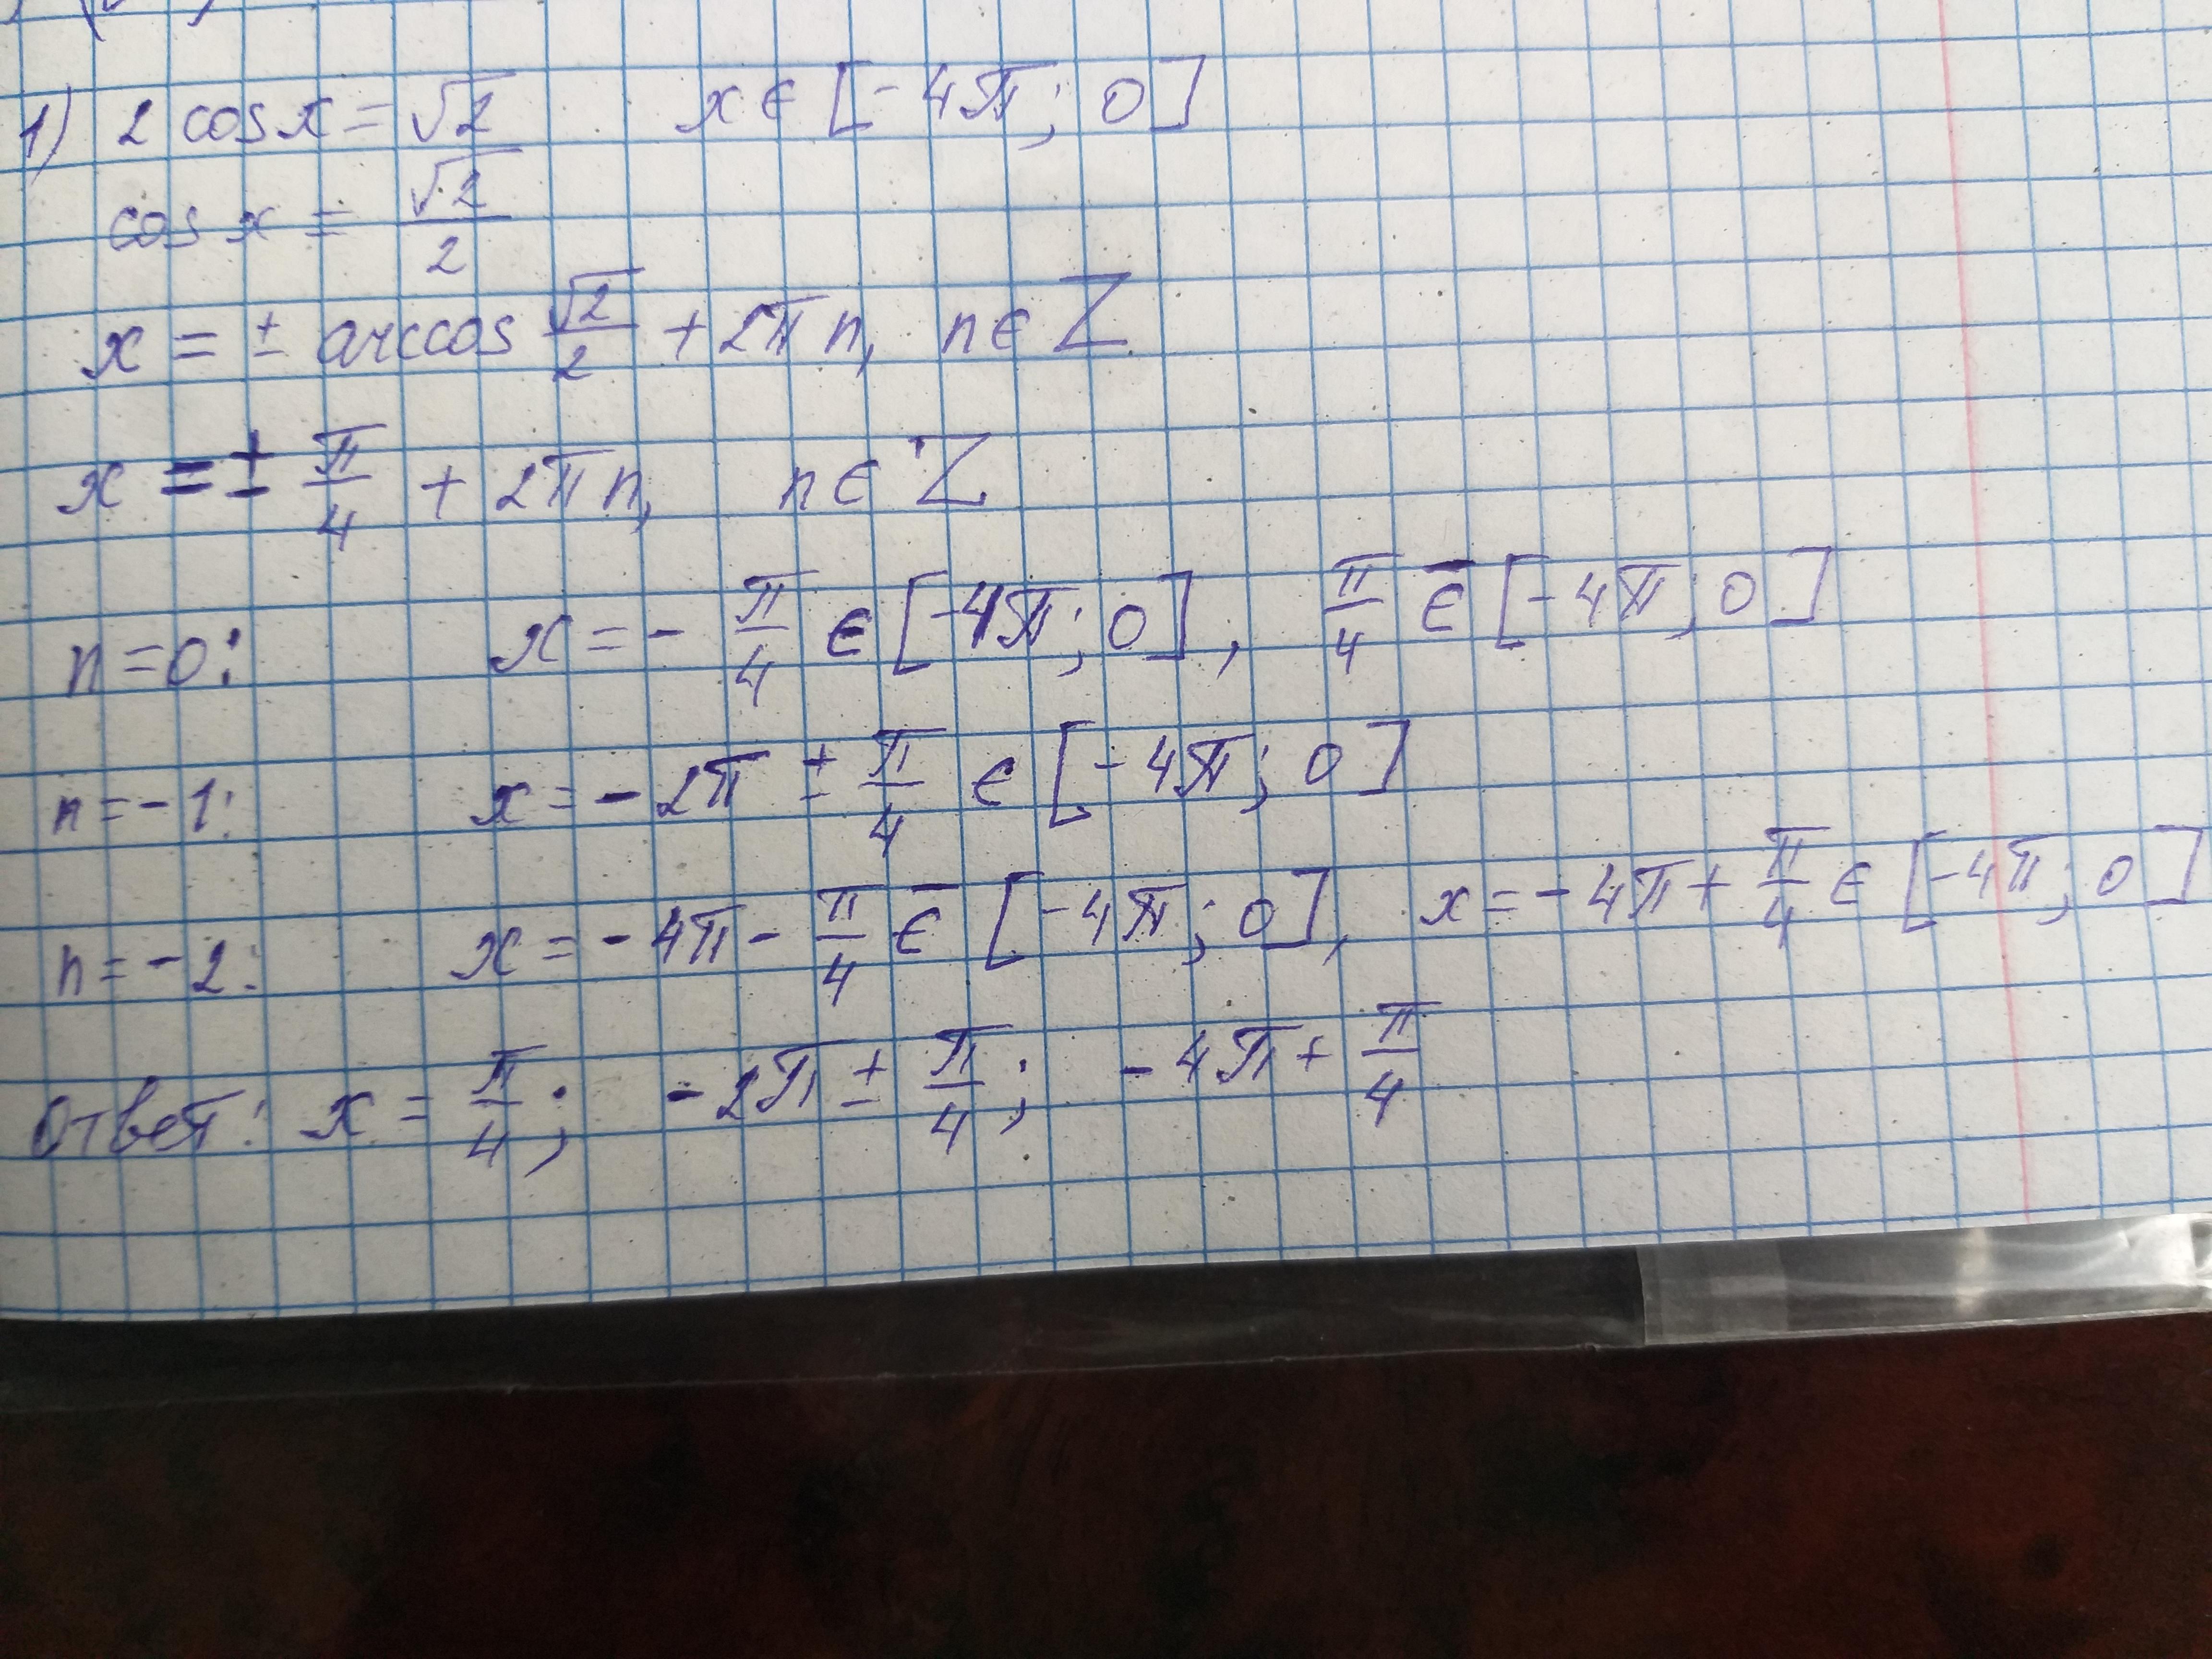 1) 2 cos x = √2 x ∈ [-4π; 0]
cos x = √2/2
x = ± arccos √2/2 + 2πn, n ∈ Z
x = ± π/4 + 2πn, n ∈ Z
n = 0: x = - π/4 ∈ [-4π; 0], π/4 ∈̅ [-4π; 0]
n = -1: x = -2π ± π/4 ∈ [-4π; 0]
n = -2: x = -4π - π/4 ∈̅ [-4π; 0], x = -4π + π/4 ∈ [-4π; 0]
Ответ: x = π/4; -2π ± π/4; -4π + π/4